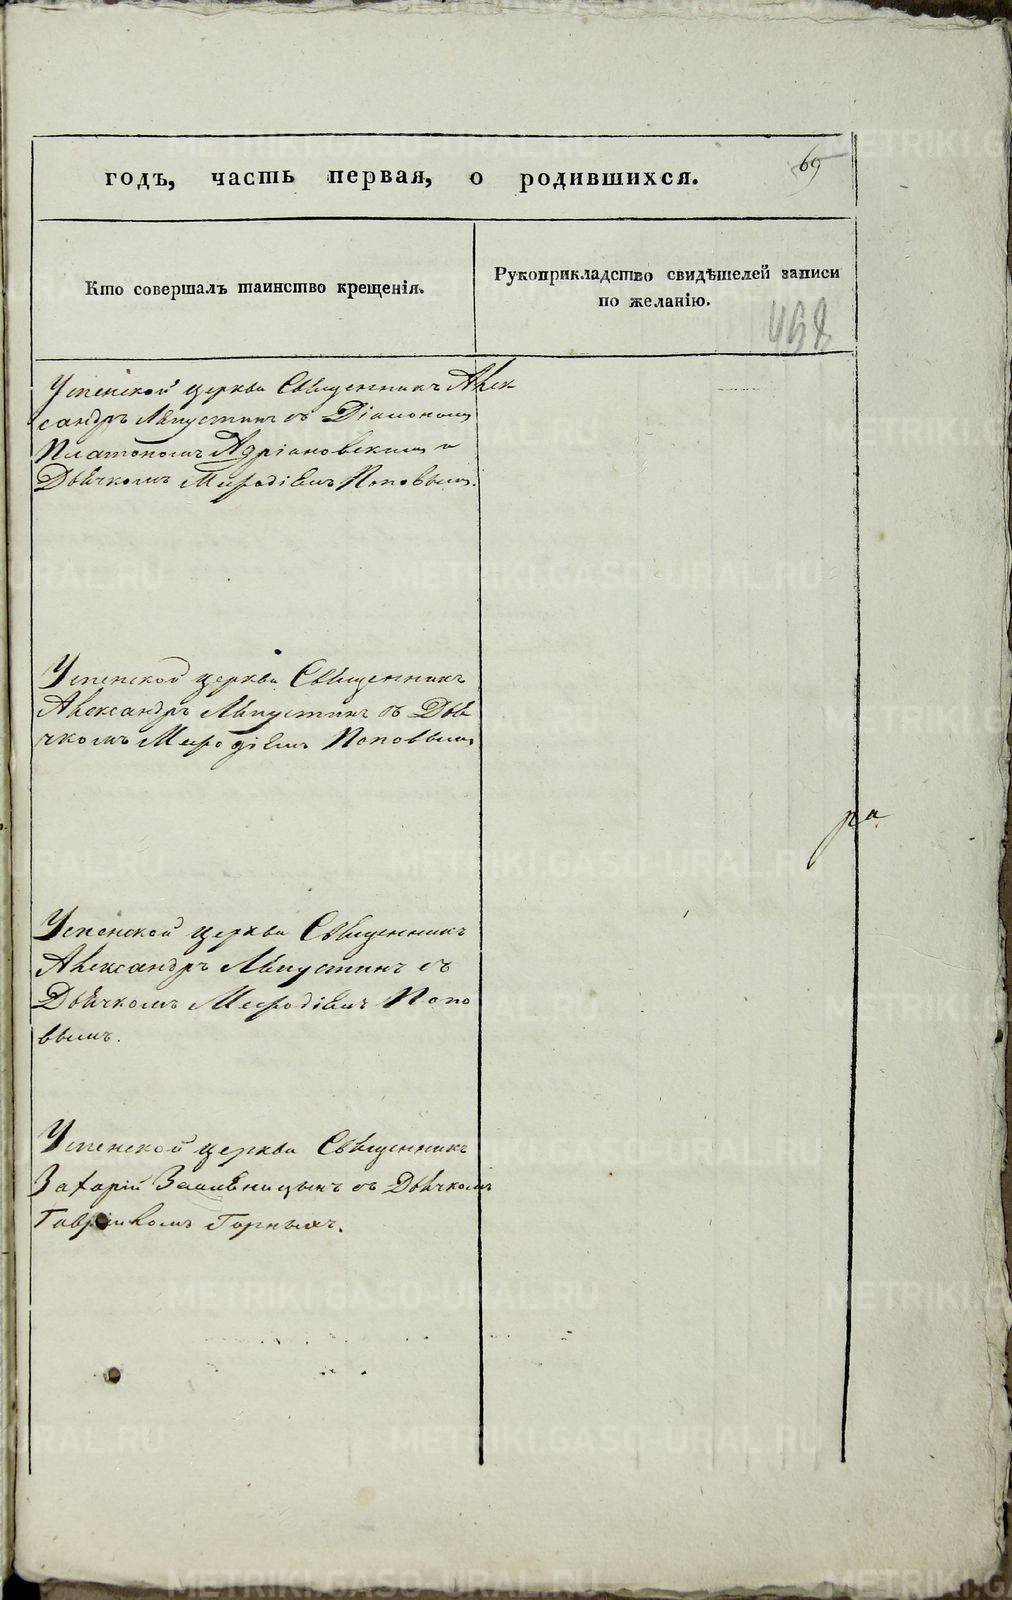 69
годъ, часть первая, о родившихся.
Кто совершалъ таинство крещенія.
Рукоприкладство свидѣтелей записи
по желанію.
458
Успенской церкви Священникъ Алек
сандръ Лѣпустинъ съ Діакономъ
Платономъ Адріановскимъ и
Дьячкомъ Меѳодіемъ Поповымъ.
Успенской церкви Священникъ
Александръ Лѣпустинъ съ Дья
чкомъ Меѳодіемъ Поповымъ
ра
Успенской церкви Священникъ
Александръ Лѣпустинъ съ
Дьячкомъ Меѳодіемъ Попо
вымъ.
Успенской церкви Священникъ
Захарій Земляницынъ съ Дьячкомъ
Горныхъ.
METRIKI.GASO-URAL.RU